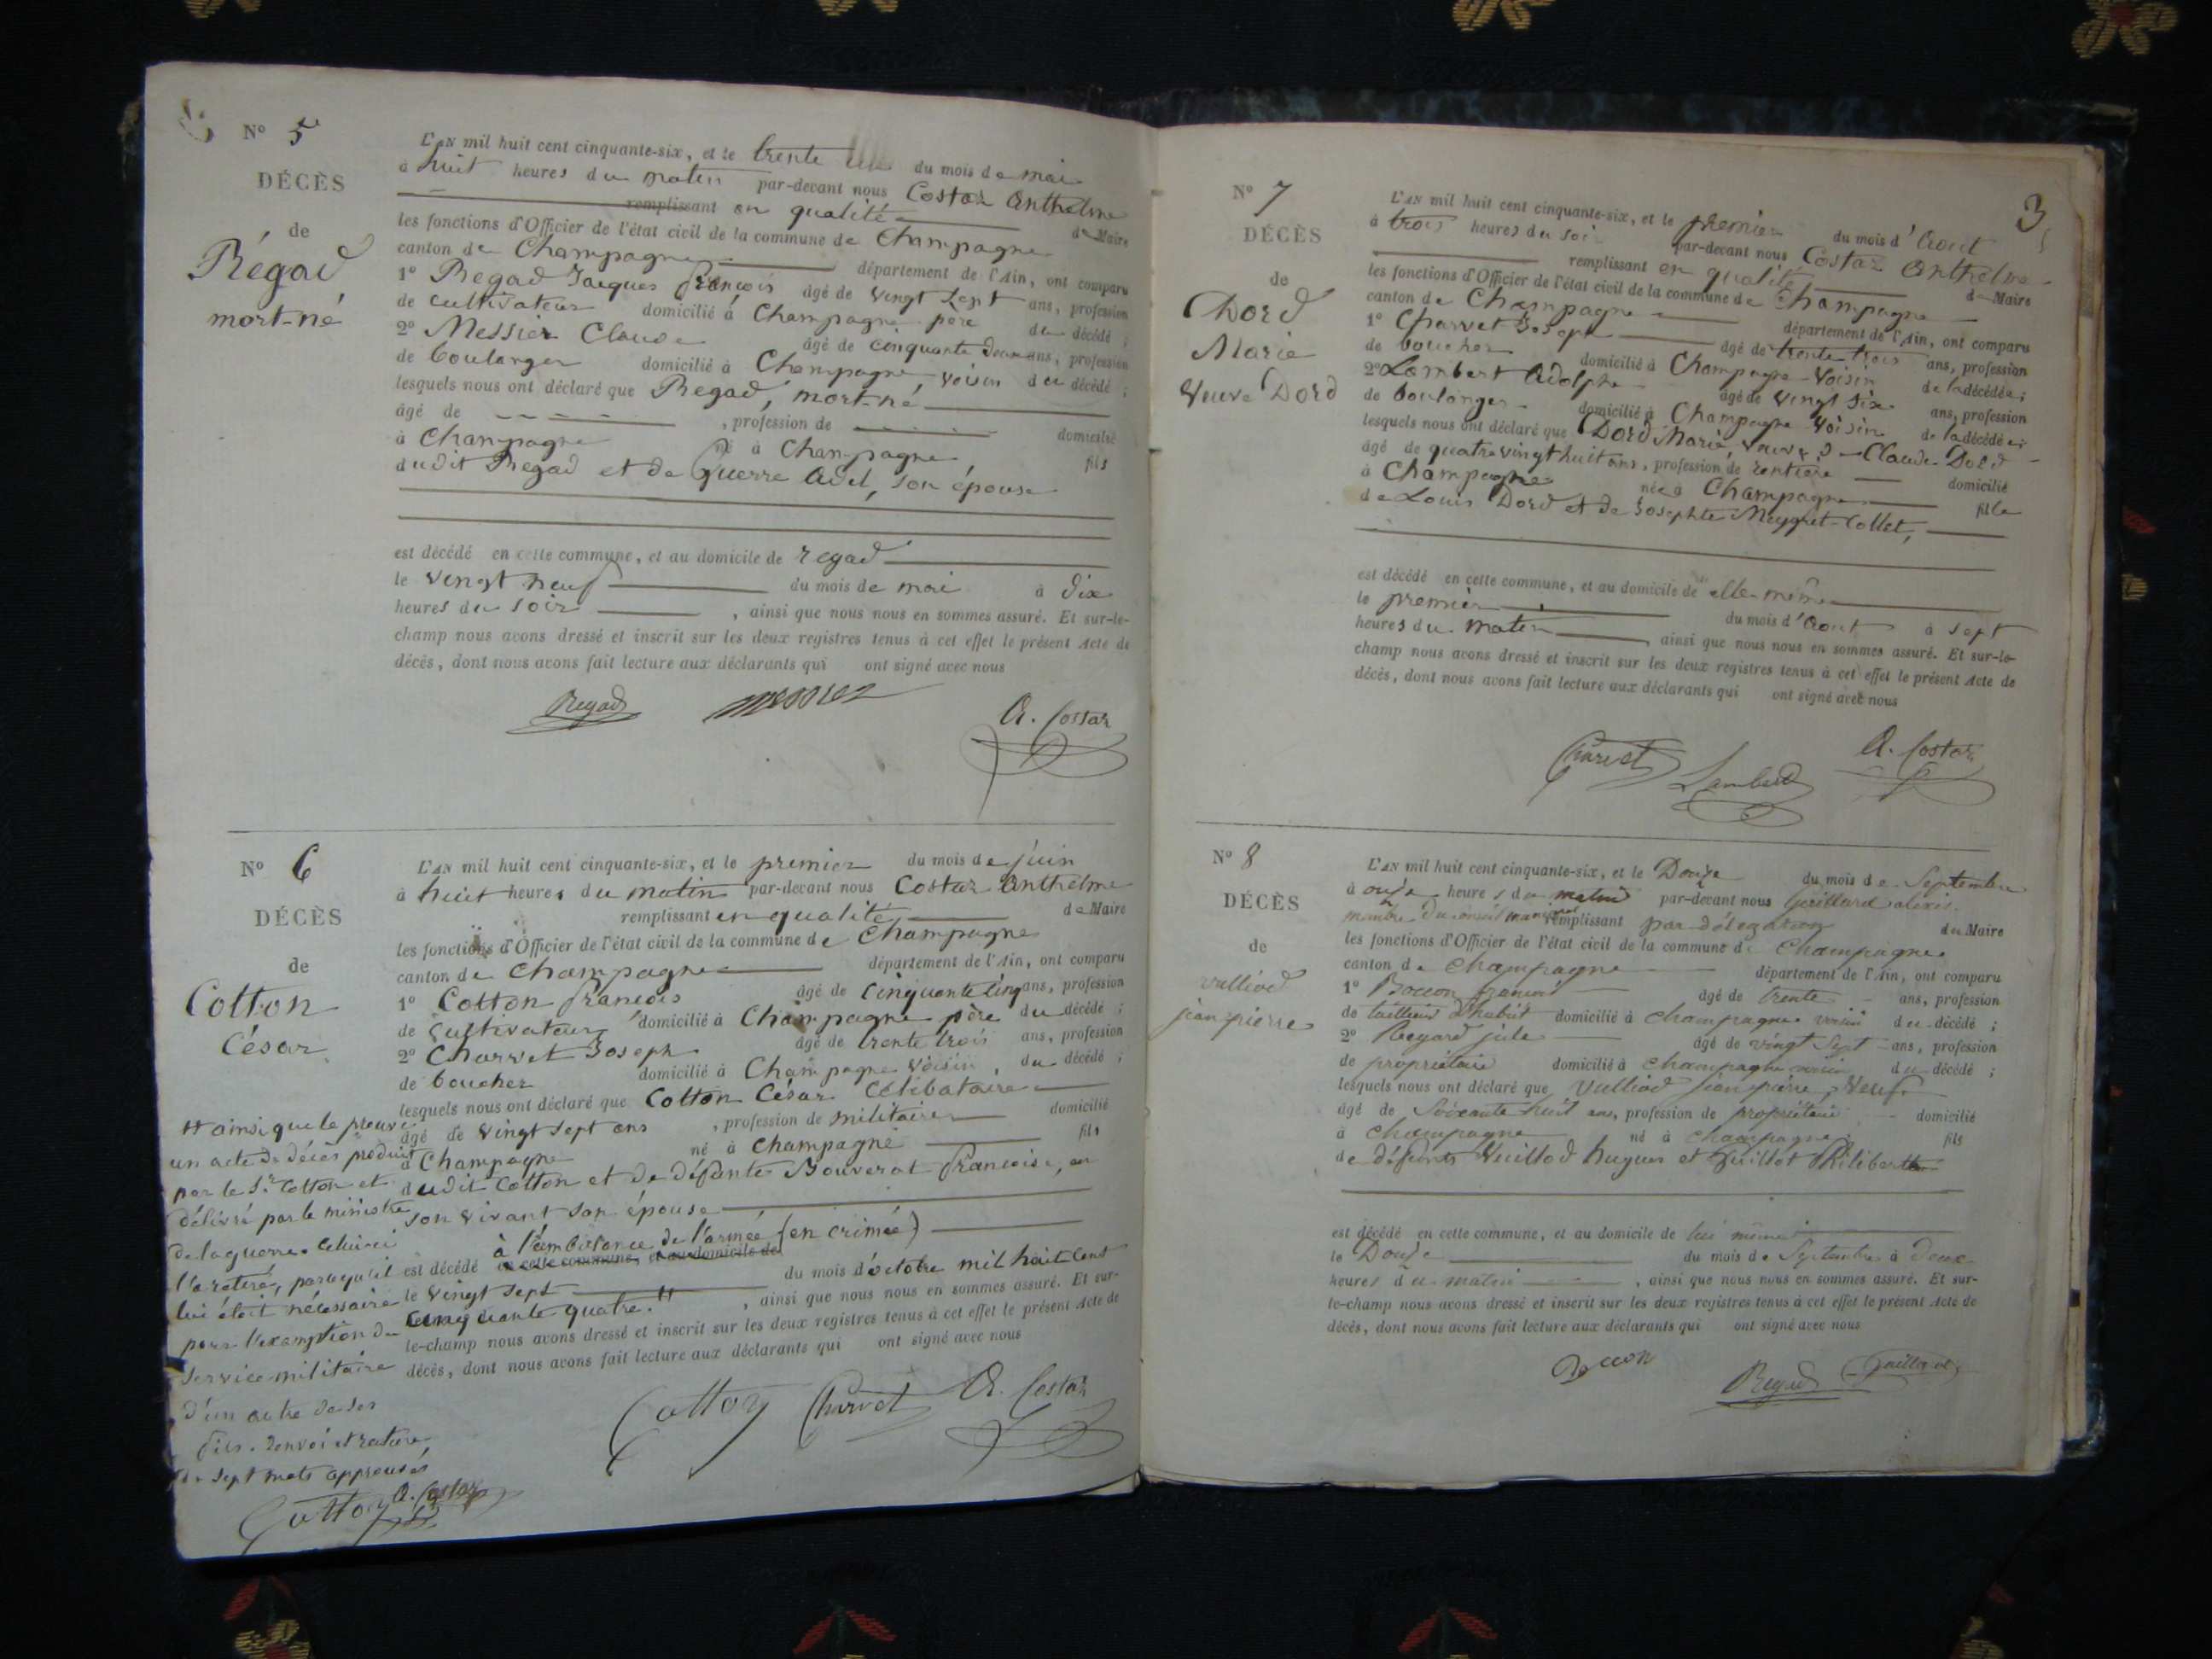 N° 5
DÉCÈS
de
Régad
mort-né
L'AN mil huit cent cinquante-six, et le trente du mois de mai
à huit heures du matin par-devant nous Costaz Anthelme
remplissant en qualité de Maire
les fonctions d'Officier de l'état civil de la commune de Champagne
canton de Champagne département de l'Ain, ont comparu
1° Regad Jacques françois âgé de vingt sept ans, profession
de cultivateur domicilié à Champagne père du décédé ;
2° Messier Claude âgé de cinquante deux ans, profession
de boulanger domicilié à Champagne voisin du décédé ;
lesquels nous ont déclaré que Regad, mort-né
âgé de , profession de domicilié
à Champagne né à Champagne fils
dudit Regad et de Guerre Adel, son épouse
est décédé en cette commune, et au domicile de regad
le vingt neuf du mois de mai à dix
heures du soir , ainsi que nous nous en sommes assuré. Et sur-le-
champ nous avons dressé et inscrit sur les deux registres tenus à cet effet le présent Acte de
décès, dont nous avons fait lecture aux déclarants qui ont signé avec nous
Regad Messier
A. Costaz
N° 6
DÉCÈS
de
Cotton
César
L'AN mil huit cent cinquante-six, et le premier du mois de juin
à huit heures du matin par-devant nous Costaz Anthelme
remplissant en qualité de Maire
les fonctions d'Officier de l'état civil de la commune de Champagne
canton de Champagne département de l'Ain, ont comparu
1° Cotton françois âgé de cinquante cinq ans, profession
de cultivateur domicilié à Champagne père du décédé ;
2° Charvet Joseph âgé de trente trois ans, profession
de boucher domicilié à Champagne voisin, du décédé ;
lesquels nous ont déclaré que Cotton César célibataire
âgé de vingt sept ans , profession de militaire domicilié
à Champagne né à Champagne fils
dudit Cotton et de défunte Bouverat françoise, en
son vivant son épouse
à l'ambulance de l'armée (en crimée)
est décédé en cette commune, et au domicile de
le vingt sept du mois d'octobre mil huit cent
cinquante quatre. # , ainsi que nous nous en sommes assuré. Et sur-
le-champ nous avons dressé et inscrit sur les deux registres tenus à cet effet le présent Acte de
décès, dont nous avons fait lecture aux déclarants qui ont signé avec nous
Cotton Charvet A. Costaz
# ainsi que le prouve
un acte de décès produit
par le Sr Cotton et
délivré par le ministre
de la guerre. Celui-ci
l'a retiré, parcequ'il
lui était nécessaire
pour l'exemption du
service militaire
d'un autre de ses
fils. Renvoi et rature
de sept mots approuvés
Cotton A. Costaz
3
N° 7
DÉCÈS
de
Dord
Marie
Veuve Dord
L'AN mil huit cent cinquante-six, et le premier du mois d'Aout
à trois heures du soir par-devant nous Costaz Anthelme
remplissant en qualité de Maire
les fonctions d'Officier de l'état civil de la commune de Champagne
canton de Champagne département de l'Ain, ont comparu
1° Charvet Joseph âgé de trente trois ans, profession
de boucher domicilié à Champagne voisin de la décédée ;
2° Lambert Adolphe âgé de vingt six ans, profession
de boulanger domicilié à Champagne voisin de la décédée ;
lesquels nous ont déclaré que Dord Marie, veuve de Claude Dord
âgé de quatre vingt huit ans, profession de rentière domicilié
à Champagne née à Champagne fille
de Louis Dord et de Josephte Meygret-Collet,
est décédé en cette commune, et au domicile de elle même
le premier du mois d'Aout à sept
heures du matin , ainsi que nous nous en sommes assuré. Et sur-le-
champ nous avons dressé et inscrit sur les deux registres tenus à cet effet le présent Acte de
décès, dont nous avons fait lecture aux déclarants qui ont signé avec nous
Charvet Lambert A. Costaz
N° 8
DÉCÈS
de
vulliod
jean pierre
L'AN mil huit cent cinquante-six, et le Douze du mois de Septembre
à onze heures du matin par-devant nous Guillard alexis
membre du conseil municipal remplissant par délégation du Maire
les fonctions d'Officier de l'état civil de la commune de Champagne
canton de Champagne département de l'Ain, ont comparu
1° Boccon françois âgé de trente ans, profession
de tailleur d'habit domicilié à Champagne voisin du décédé ;
2° Regard jule âgé de vingt sept ans, profession
de propriétaire domicilié à Champagne voisin du décédé ;
lesquels nous ont déclaré que Vulliod jean pierre, veuf
âgé de soixante huit ans, profession de propriétaire domicilié
à Champagne né à Champagne fils
de défunts Vuillod hugues et Guillot Philiberthe
est décédé en cette commune, et au domicile de lui même
le Douze du mois de Septembre à deux
heures du matin , ainsi que nous nous en sommes assuré. Et sur-
le-champ nous avons dressé et inscrit sur les deux registres tenus à cet effet le présent Acte de
décès, dont nous avons fait lecture aux déclarants qui ont signé avec nous
Boccon Regad